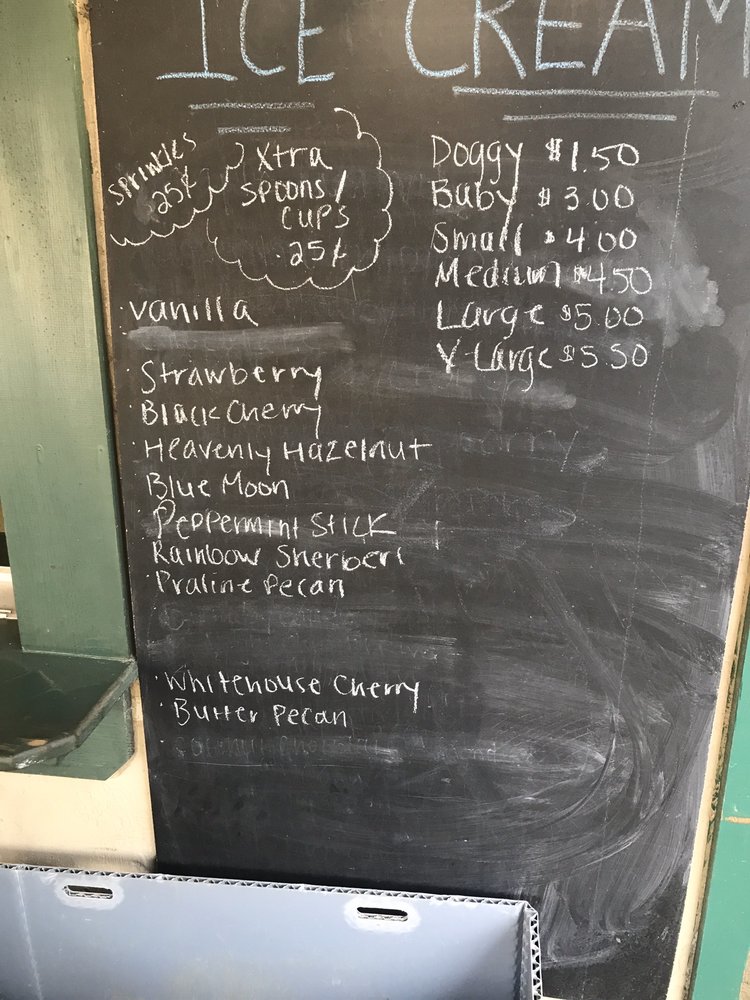 ICE CREAM
sprinkles
25¢
Xtra
spoons/
cups
.25¢
Doggy $1.50
Baby $3.00
Small $4.00
Medium $4.50
Large $5.00
X-Large $5.50
·vanilla
·Strawberry
·Black Cherry
·Heavenly Hazelnut
·Blue Moon
·Peppermint Stick
·Rainbow Sherbert
·Praline Pecan
·Whitehouse Cherry
·Butter Pecan